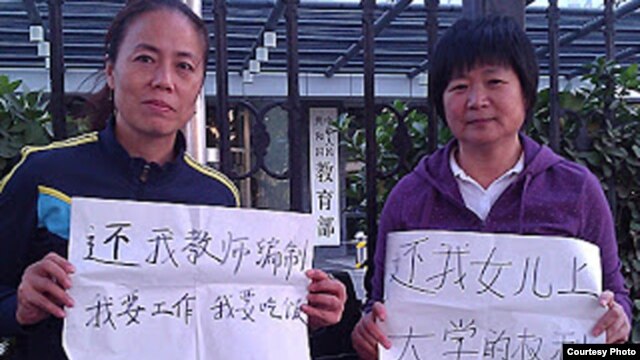 中华人民
共和国
教育部
还我教师编制
我要工作 我要吃饭
还我女儿上
大学的权利
Courtesy Photo